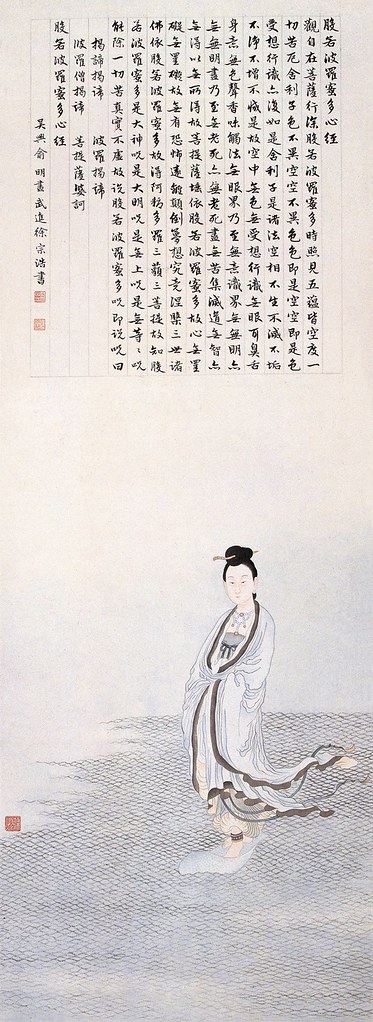 般若波羅蜜多心經
觀自在菩薩行深般若波羅蜜多時照見五蘊皆空度一
切苦厄舍利子色不異空空不異色色即是空空即是色
受想行識亦復如是舍利子是諸法空相不生不滅不垢
不淨不增不減是故空中無色無受想行識無眼耳鼻舌
身意無色聲香味觸法無眼界乃至無意識界無無明亦
無無明盡乃至無老死亦無老死盡無苦集滅道無智亦
無得以無所得故菩提薩埵依般若波羅蜜多故心無罣
礙無罣礙故無有恐怖遠離顛倒夢想究竟涅槃三世諸
佛依般若波羅蜜多故得阿耨多羅三藐三菩提故知般
若波羅蜜多是大神呪是大明呪是無上呪是無等々呪
能除一切苦真實不虛故說般若波羅蜜多呪即說呪曰
揭諦揭諦 波羅揭諦
波羅僧揭諦 菩提薩婆訶
般若波羅蜜多心經
吳興俞明畫武進徐宗浩書